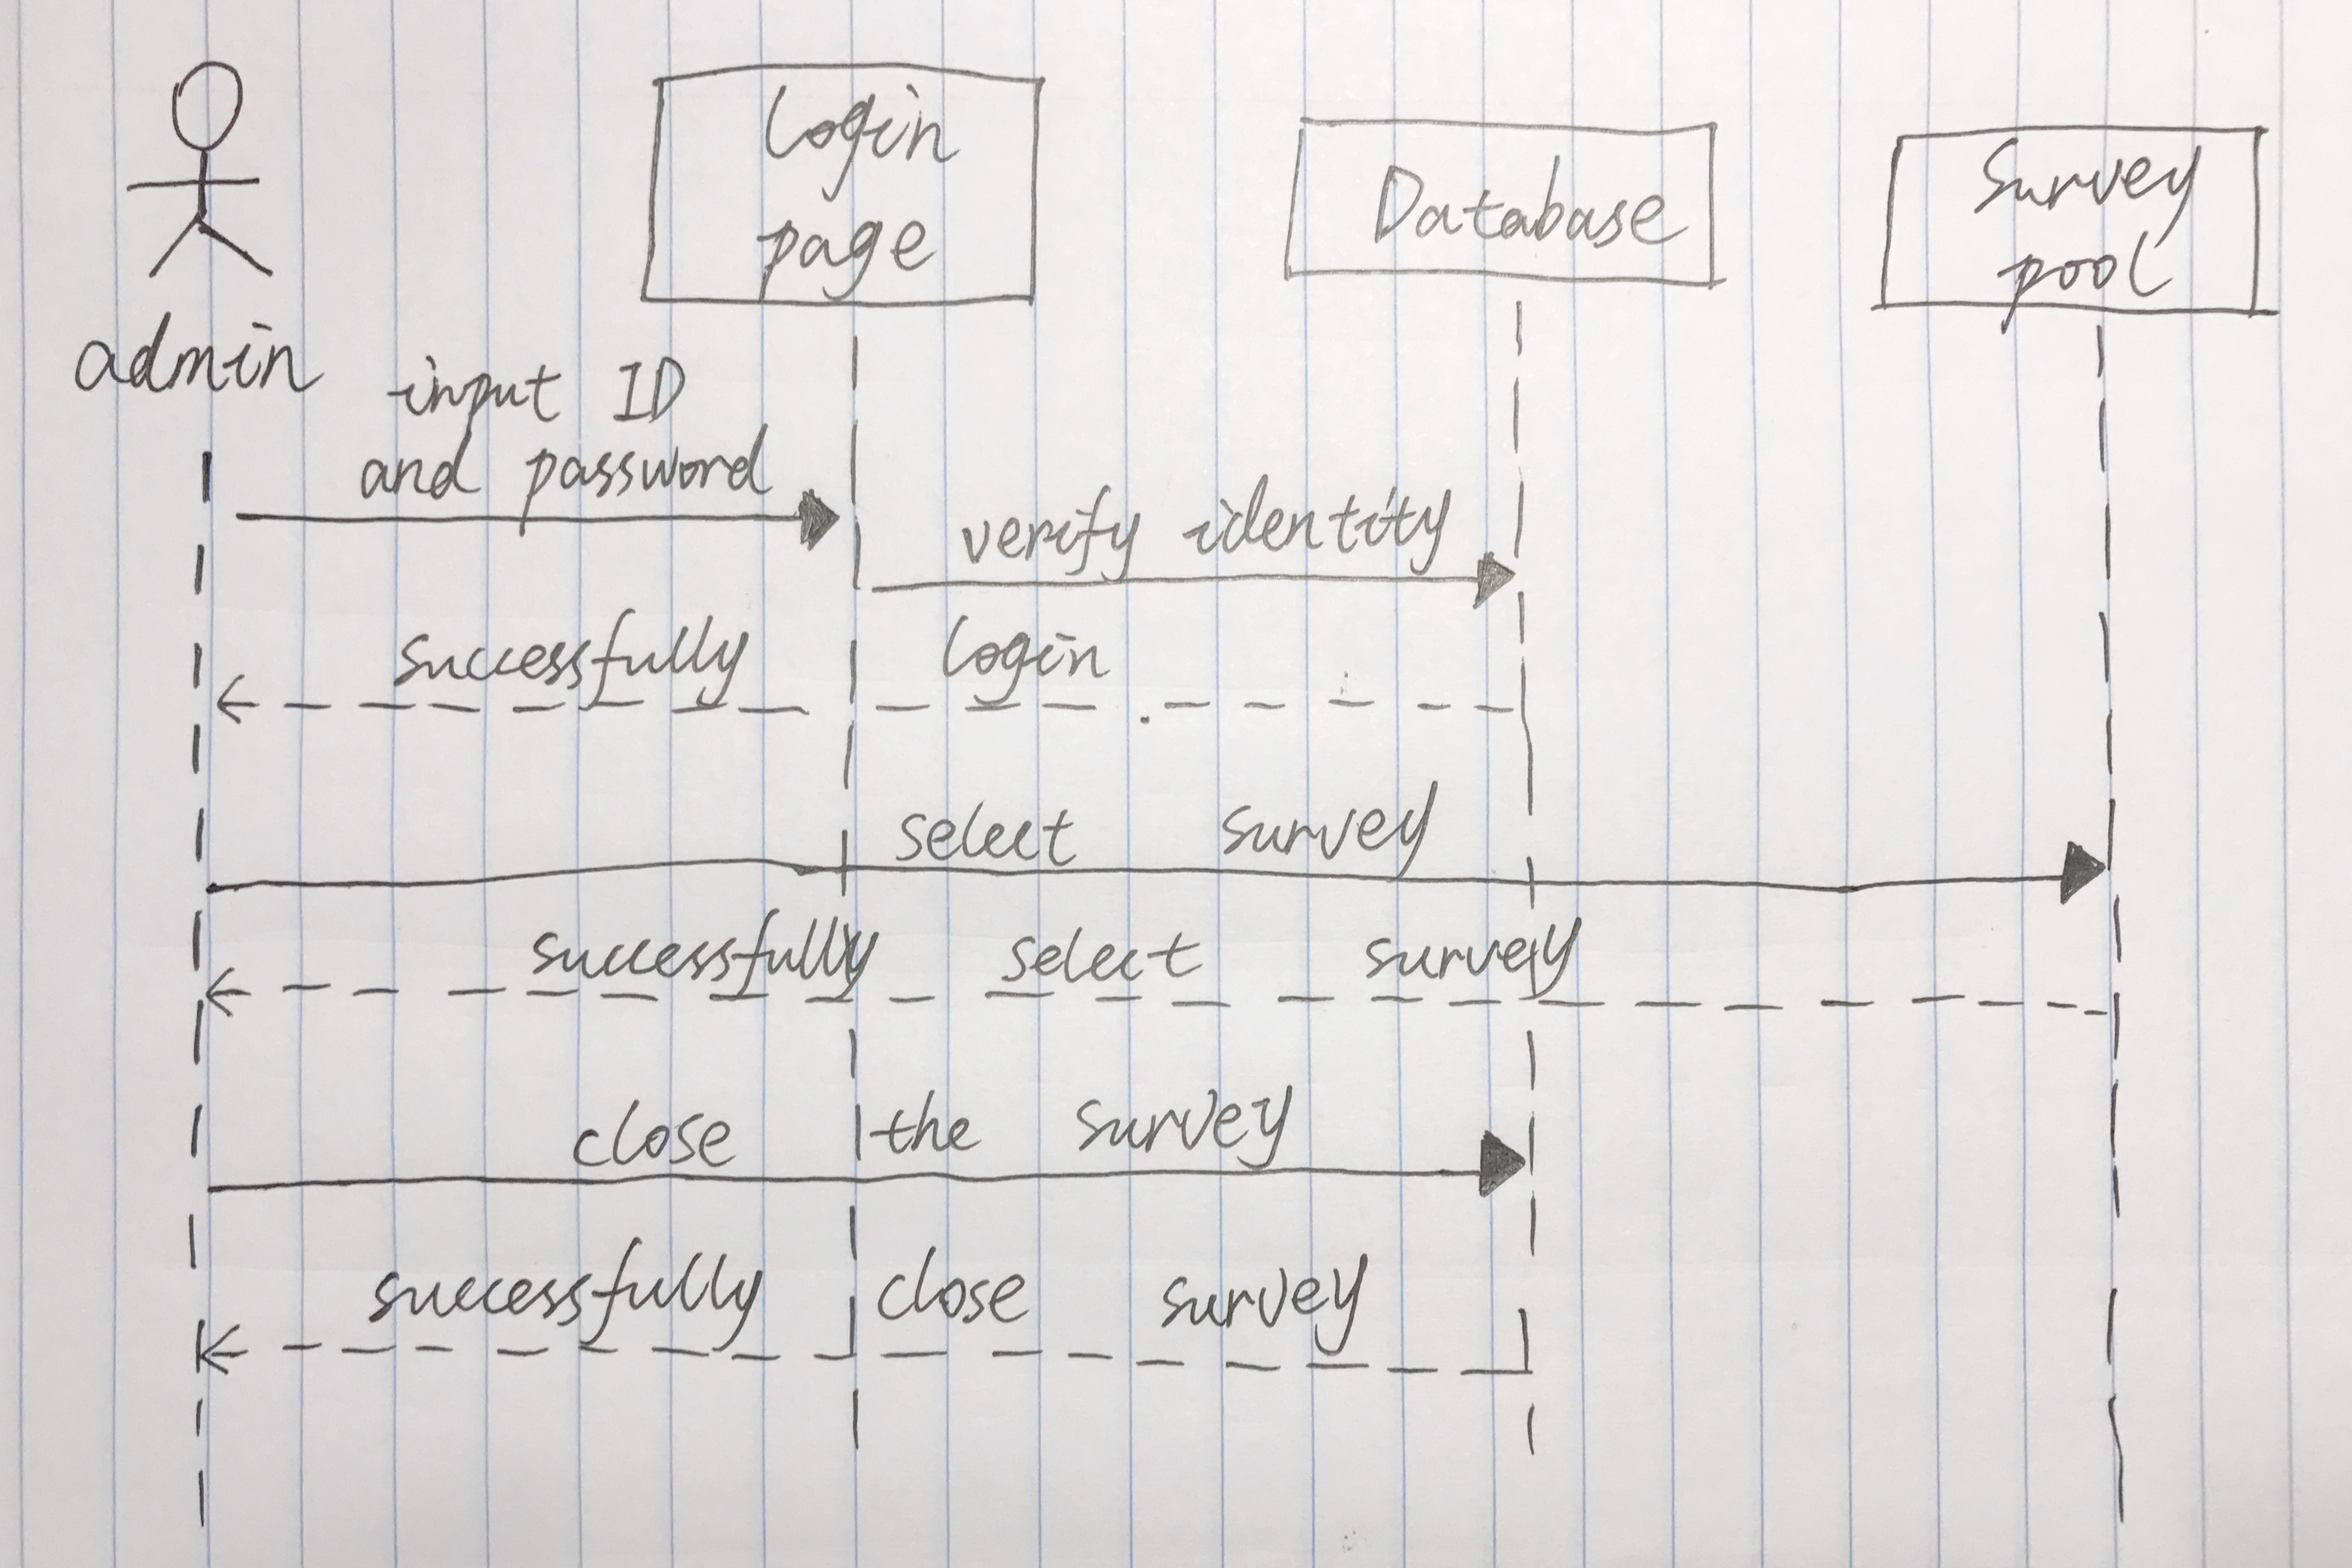 Login
page
Database
Survey
pool
admin
input ID
and password
verify identity
successfully login
select survey
successfully select survey
close the survey
successfully close survey